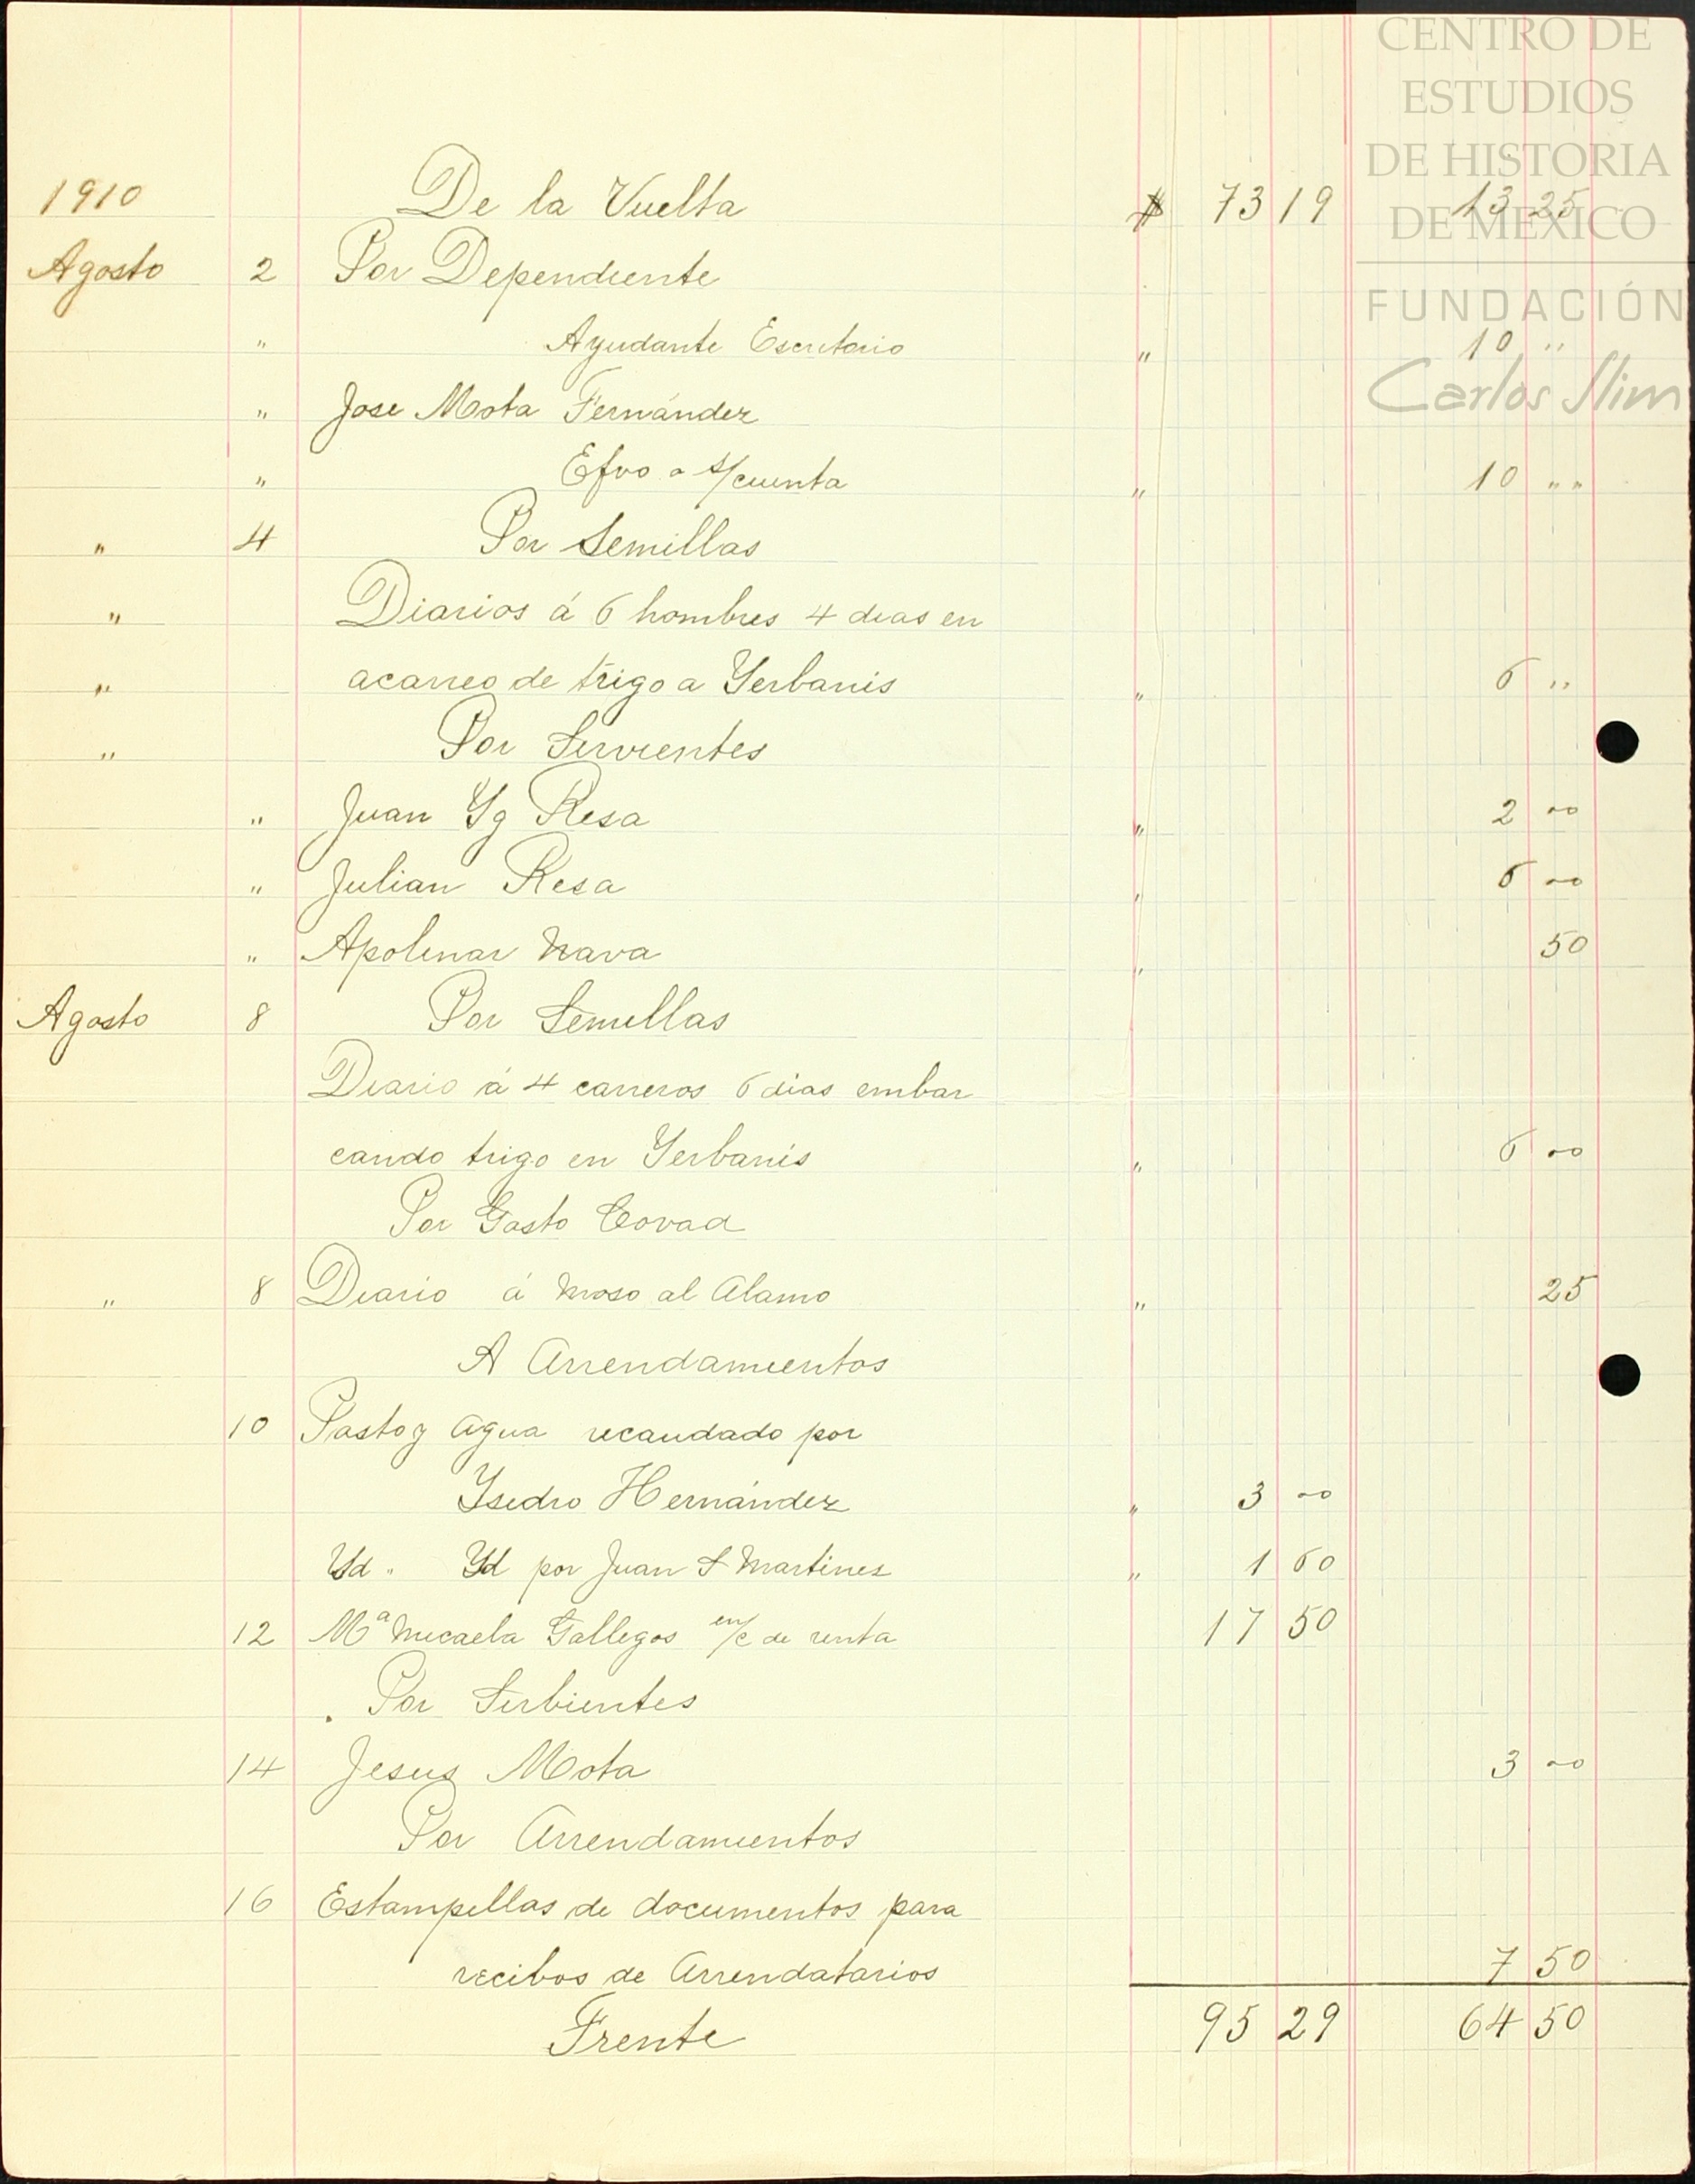 CENTRO DE
ESTUDIOS
DE HISTORIA
DE MÉXICO
FUNDACIÓN
Carlos Slim
1910 De la Vuelta $ 73 19 13 25
Agosto 2 Por Dependiente
" Ayudante Escritorio " 10 "
" Jose Mota Fernández
" Efvo a s/cuenta " 10 " "
" 4 Por Semillas
" Diarios á 6 hombres 4 dias en
" acarreo de trigo a Yerbanis " 6 "
" Por Sirvientes
" Juan Yg Resa " 2 00
" Julian Resa " 6 00
" Apolinar Nava " 50
Agosto 8 Por Semillas
Diario á 4 carreros 6 dias embar
cando trigo en Yerbanis " 6 00
Por Gasto
" 8 Diario á moso al Alamo " 25
A Arrendamientos
10 Pasto y agua recaudado por
Ysidro Hernández " 3 00
Yd " Yd por Juan S Martines " 1 60
12 Mª Micaela Gallegos en/c de renta 17 50
Por Sirbientes
14 Jesus Mota 3 00
Por Arrendamientos
16 Estampillas de documentos para
recibos de Arrendatarios 7 50
Frente 95 29 64 50